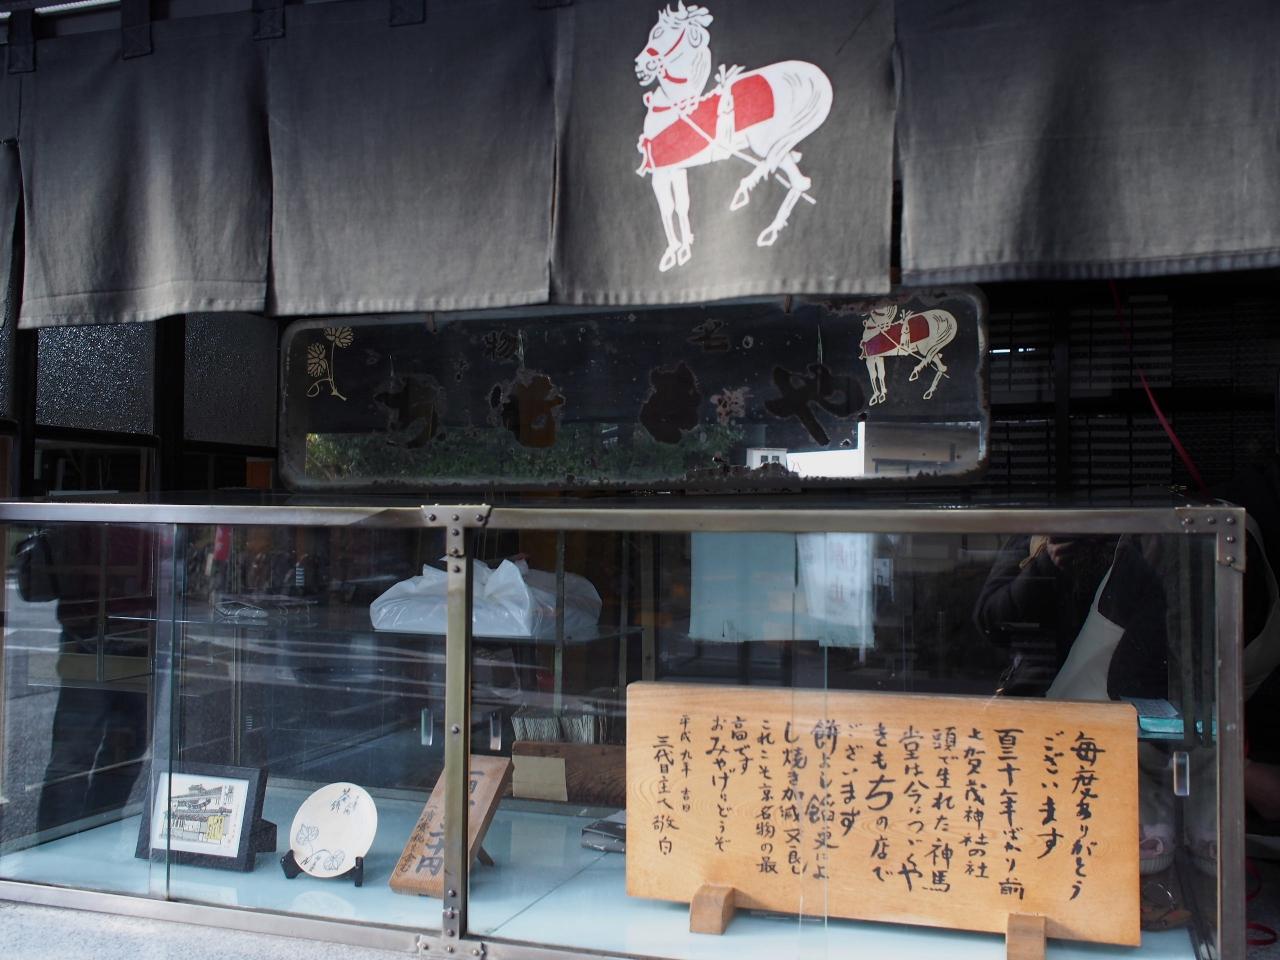 名物
やきもち
毎度ありがとう
ございます
百三十年ばかり前
上賀茂神社の社
頭で生れた神馬
堂は今につづくや
きもちの店で
ございます
餅よし餡更によ
し焼き加減又良し
これこそ京名物の最
高です
おみやげにどうぞ
平成九年 吉日
三代目主人敬白